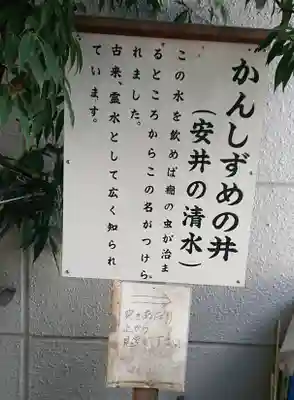 かんしずめの井
(安井の清水)
この水を飲めば癇の虫が治ま
るところからこの名がつけら
れました。
古来、霊水として広く知られ
ています。
→
上から